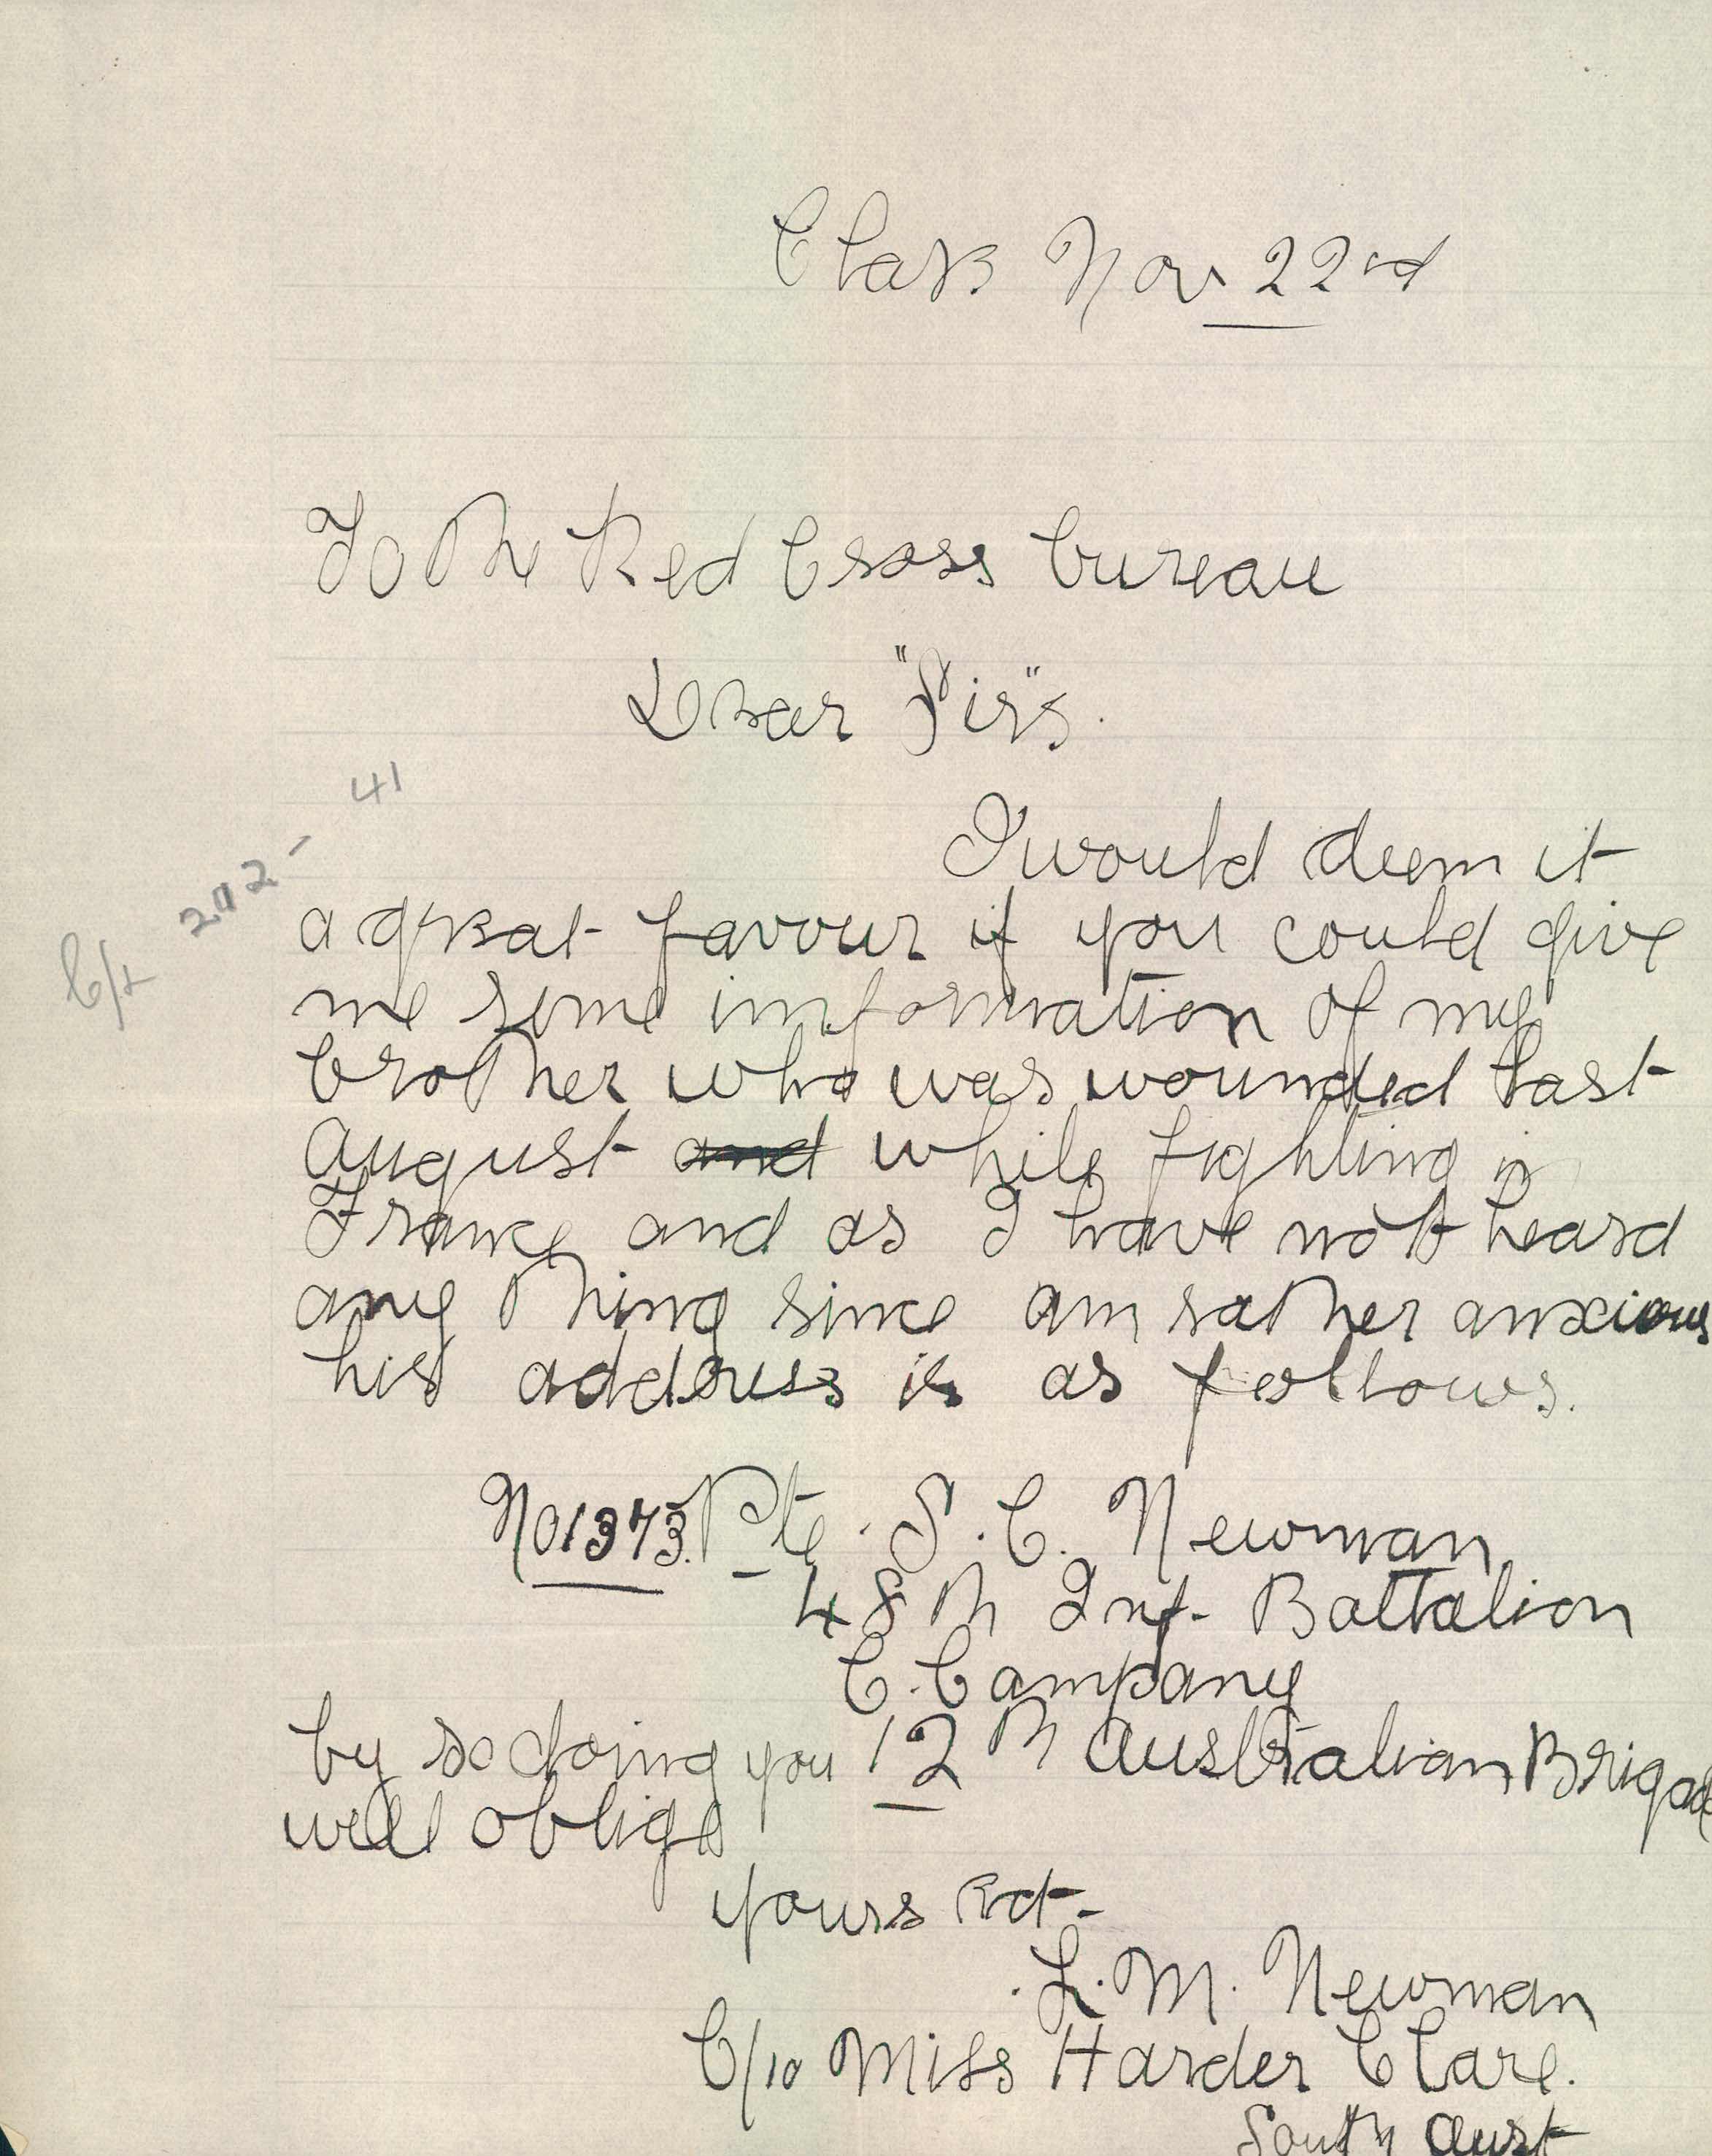 Clare Nov 22nd
To The Red Cross bureau
Dear "Sir"s.
41
I would deem it
a great favour if you could give
me some imformation of my
brother who was wounded last
August and while fighting in
France and as I have not heard
any thing since am rather anxious
his address is as follows.
No 1373. Pte. S. C. Newman
48th Inf. Battalion
C. Company
by so doing you 12th Australian Brigade
will oblige
yours Rct-
L. M. Newman
C/o Miss Harder Clare.
South Aust